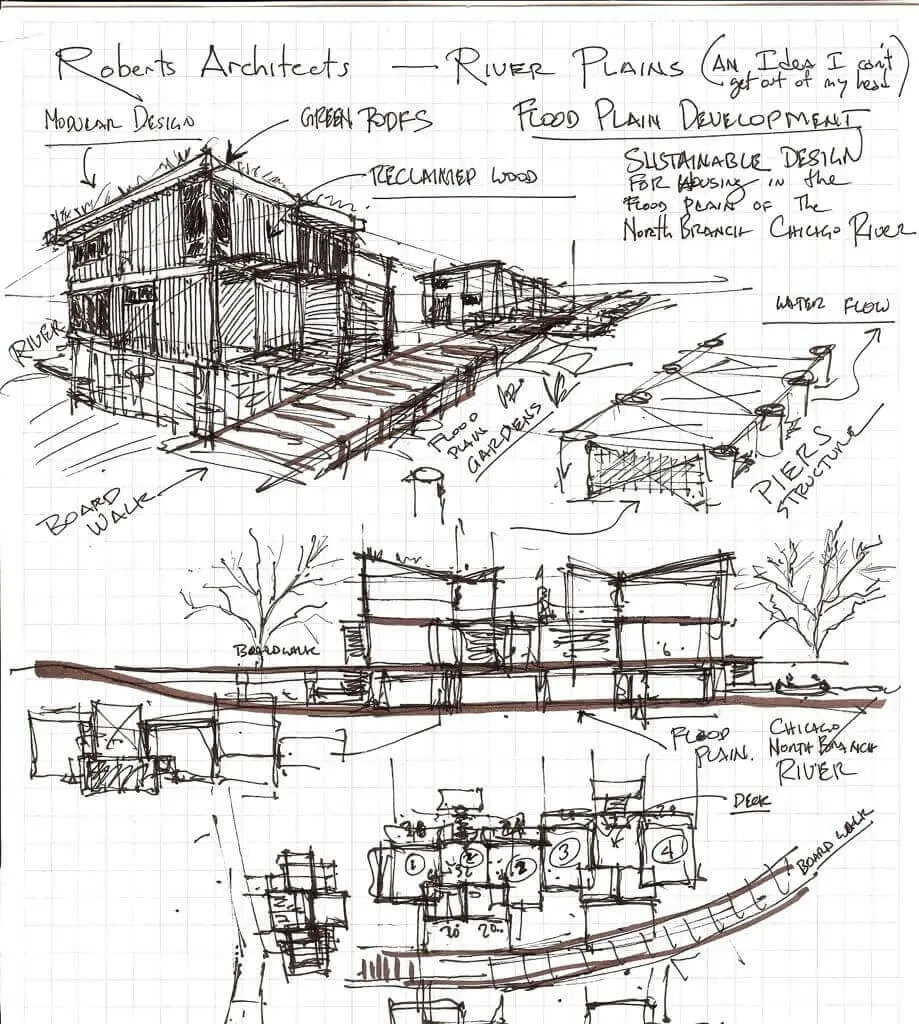 Roberts Architects — River Plains (An Idea I can't
get out of my head)
Modular Design
Green Roofs
Flood Plain Development
Reclaimed Wood
Sustainable Design
for Housing in the
Flood Plain of the
North Branch Chicago River
Water Flow
River
Flood
Plain
Gardens
Piers
Structure
Board
Walk
Boardwalk
Flood
Plain.
Chicago
North Branch
River
Deck
Board Walk
1
2
2
3
4
20
20